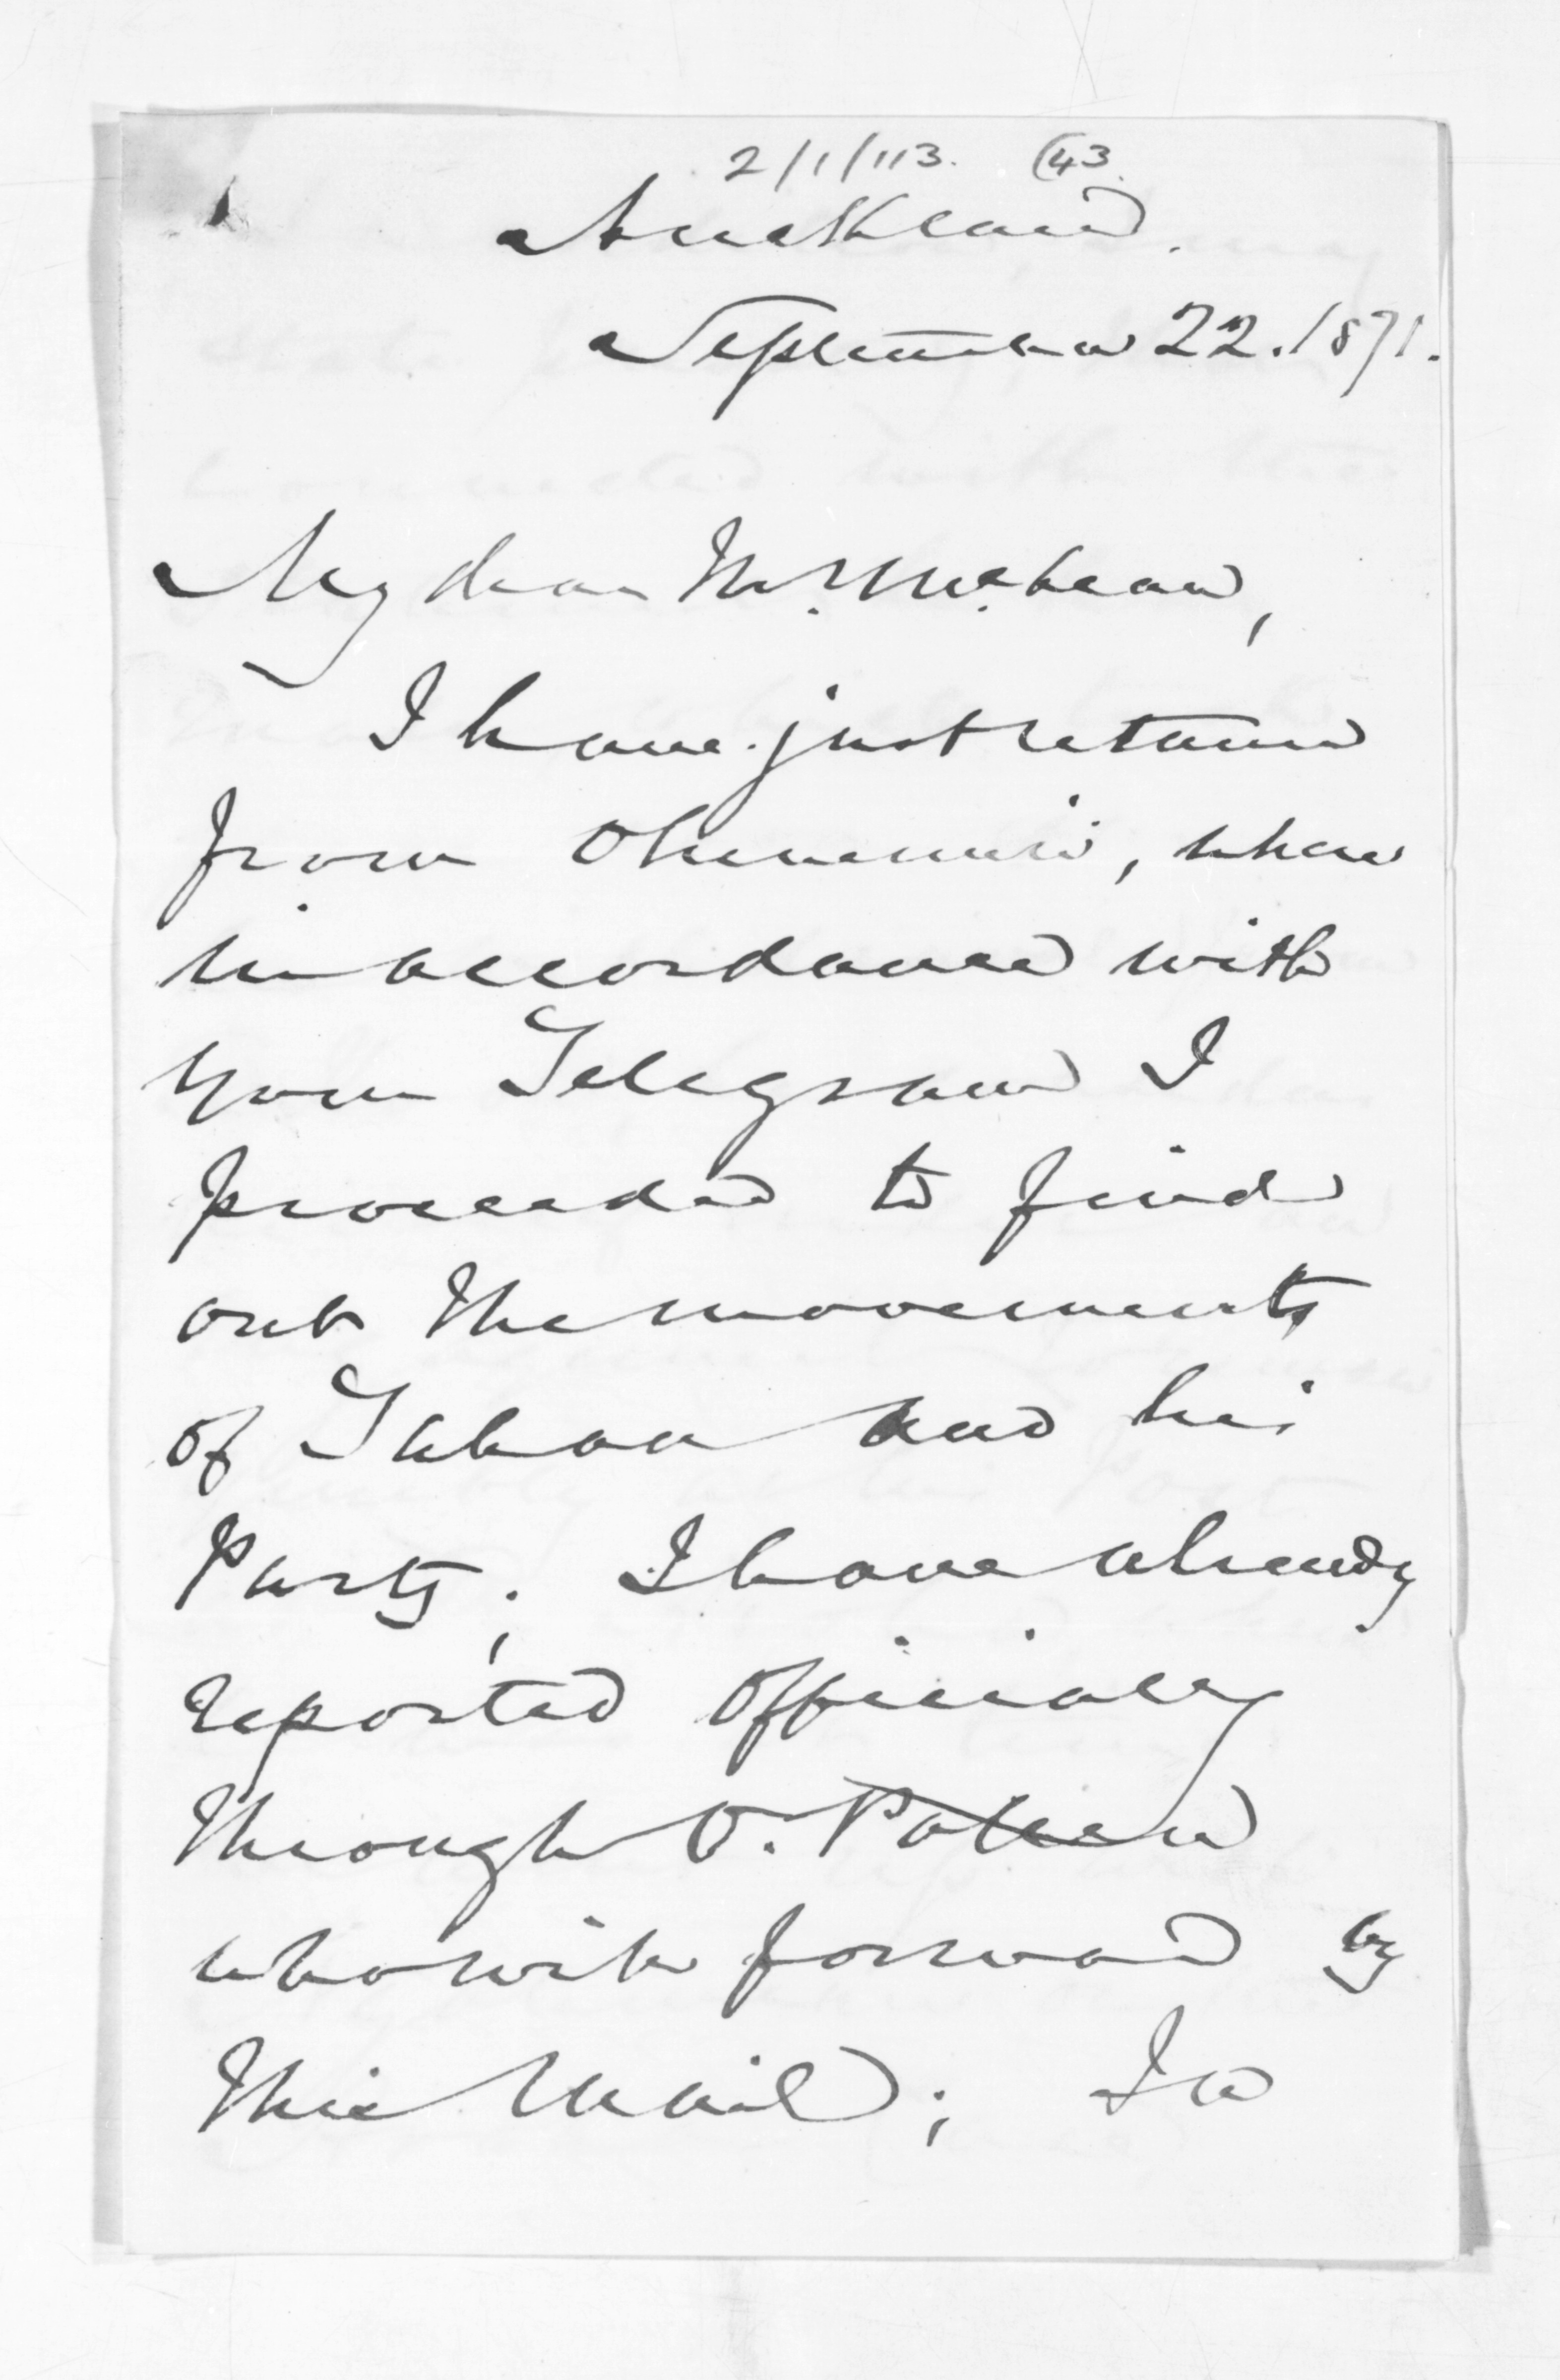 2/1/113. (43.
Auckland.
September 22. 1871.
My dear Mr. McLean,
I have just returned
from Ohinemuri, where
in accordance with
your Telegram I
proceeded to find
out the movements
of and his
Party; I have already
reported officially
through D. Pollen
who will forward by
this Mail; In